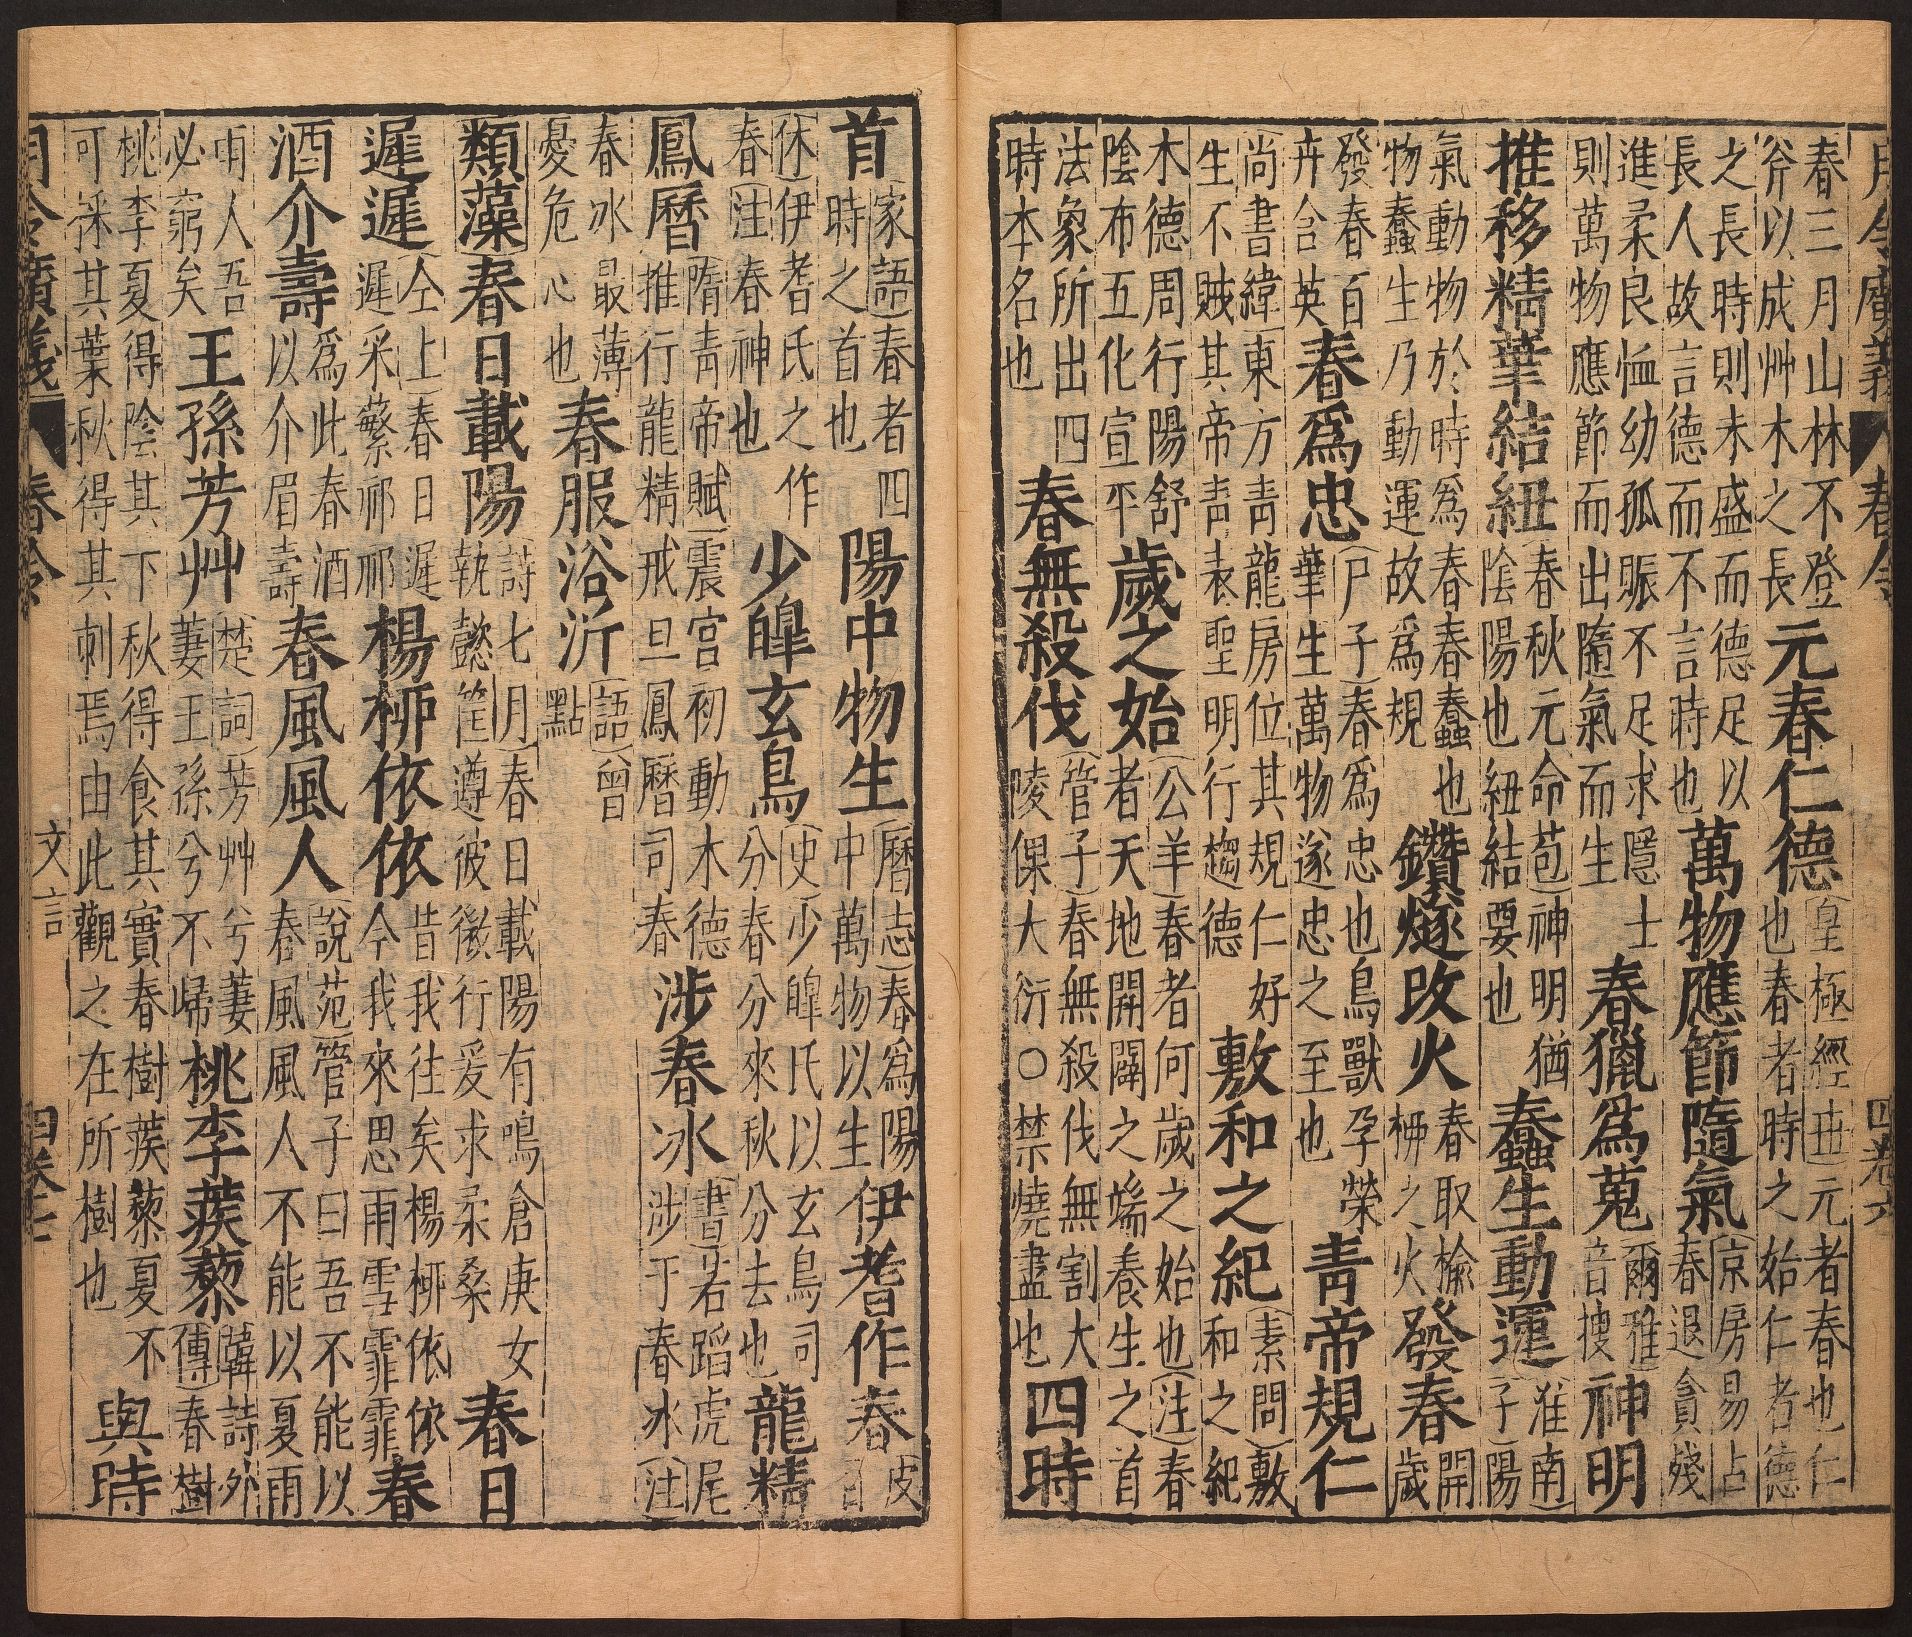 月令廣義 春令 四卷六
春三月山林不登斧以成艸木之長元春仁德皇極經世元者春也仁也春者時之始仁者德
之長時則未盛而德足以長人故言德而不言時也萬物應節隨氣京房易占春退貪殘
進柔良恤幼孤賑不足求隱士則萬物應節而出隨氣而生春獵爲蒐爾雅音搜神明
推移精華結紐春秋元命苞神明猶陰陽也紐結要也蠢生動運淮南子陽
氣動物於時爲春春蠢也物蠢生乃動運故爲規鑽燧改火春取榆柳之火發春開歲
發春百卉含英春爲忠尸子春爲忠也鳥獸孕榮華生萬物遂忠之至也青帝規仁
尚書緯東方青龍房位其規仁好生不賊其帝青表聖明行趨德敷和之紀素問敷和之紀
木德周行陽舒陰布五化宣平歲之始公羊春者何歲之始也注春者天地開闢之端養生之首
法象所出四時本名也春無殺伐管子春無殺伐無割大陵倮大衍○禁燒盡也四時
首家語春者四時之首也陽中物生曆志春爲陽中萬物以生伊耆作春皮日
休伊耆氏之作春注春神也少皥玄鳥史少皥氏以玄鳥司分春分來秋分去也龍精
鳳曆隋青帝賦震宮初動木德推行龍精戒旦鳳曆司春涉春冰書若蹈虎尾涉于春冰注
春冰最薄憂危心也春服浴沂語曾點
類藻春日載陽詩七月春日載陽有鳴倉庚女執懿筐遵彼微行爰求柔桑春日
遲遲仝上春日遲遲采蘩祁祁楊柳依依昔我往矣楊柳依依今我來思雨雪霏霏春
酒介壽爲此春酒以介眉壽春風風人說苑管子曰吾不能以春風風人不能以夏雨
雨人吾必窮矣王孫芳艸楚詞芳艸兮萋萋王孫兮不歸桃李蒺藜韓詩外傳春樹
桃李夏得陰其下秋得食其實春樹蒺藜夏不可采其葉秋得其刺焉由此觀之在所樹也與時
月令廣義 春令 文言 四卷七